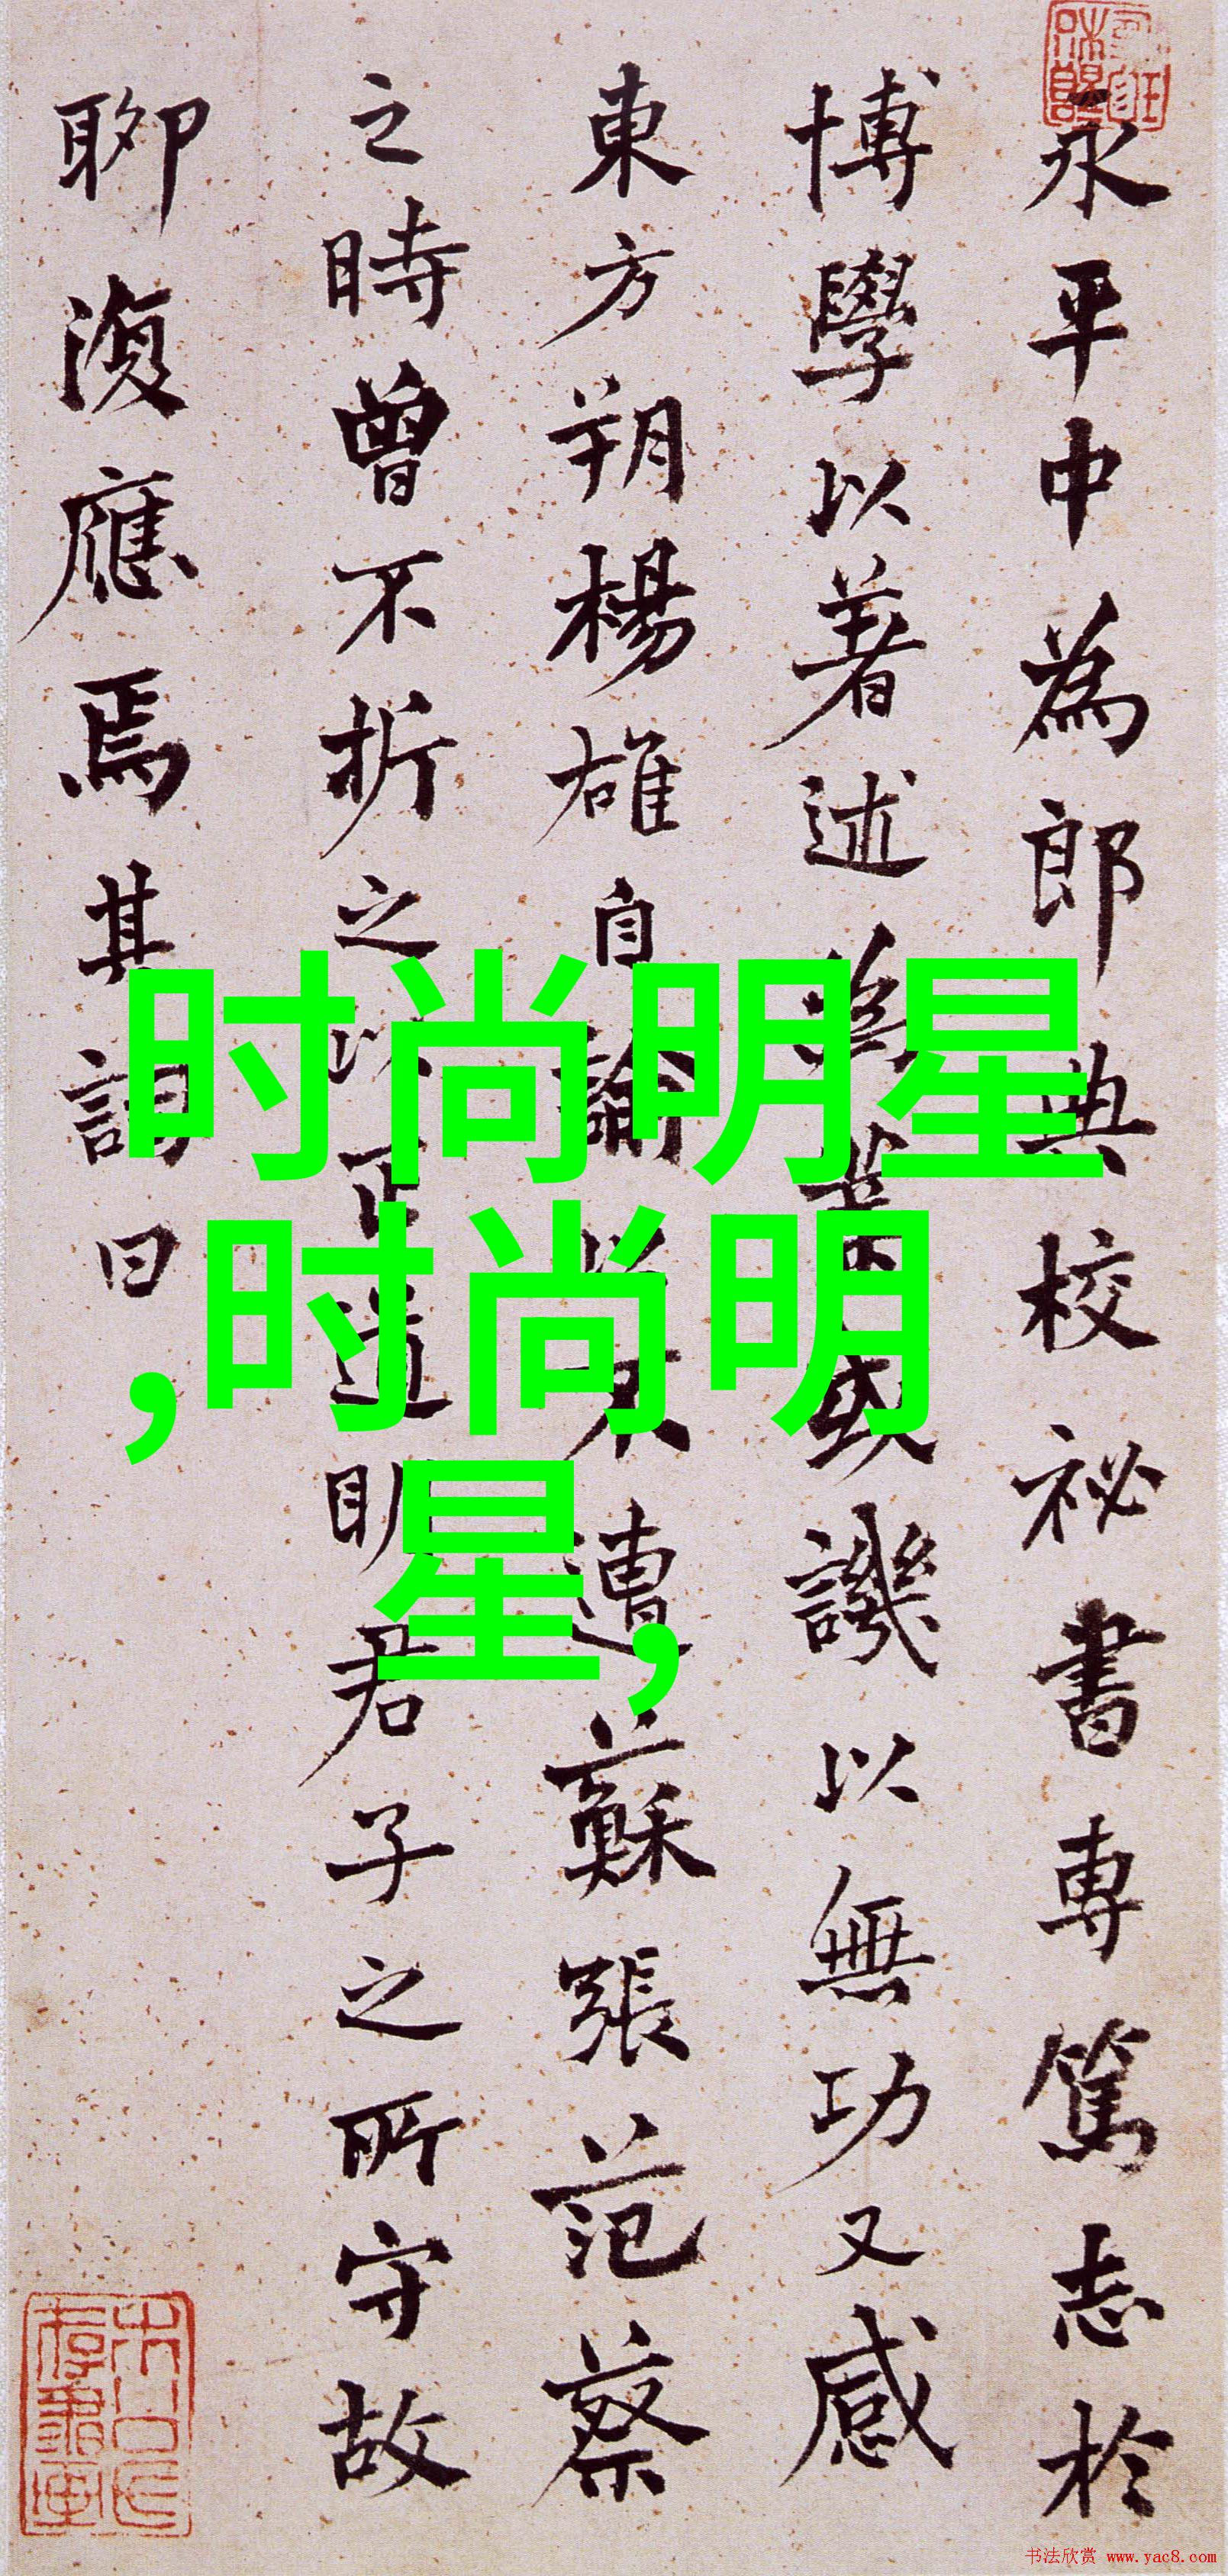 永平中為郎典校祕書專篤志於
博學以著述為業或譏以無功又感
東方朔楊雄自論以不遭蘇張范蔡
之時曾不折之以正道眀君子之所守故
聊復應焉其詞曰
时尚明星
,时尚明
星,
书法欣赏 www.yac8.com